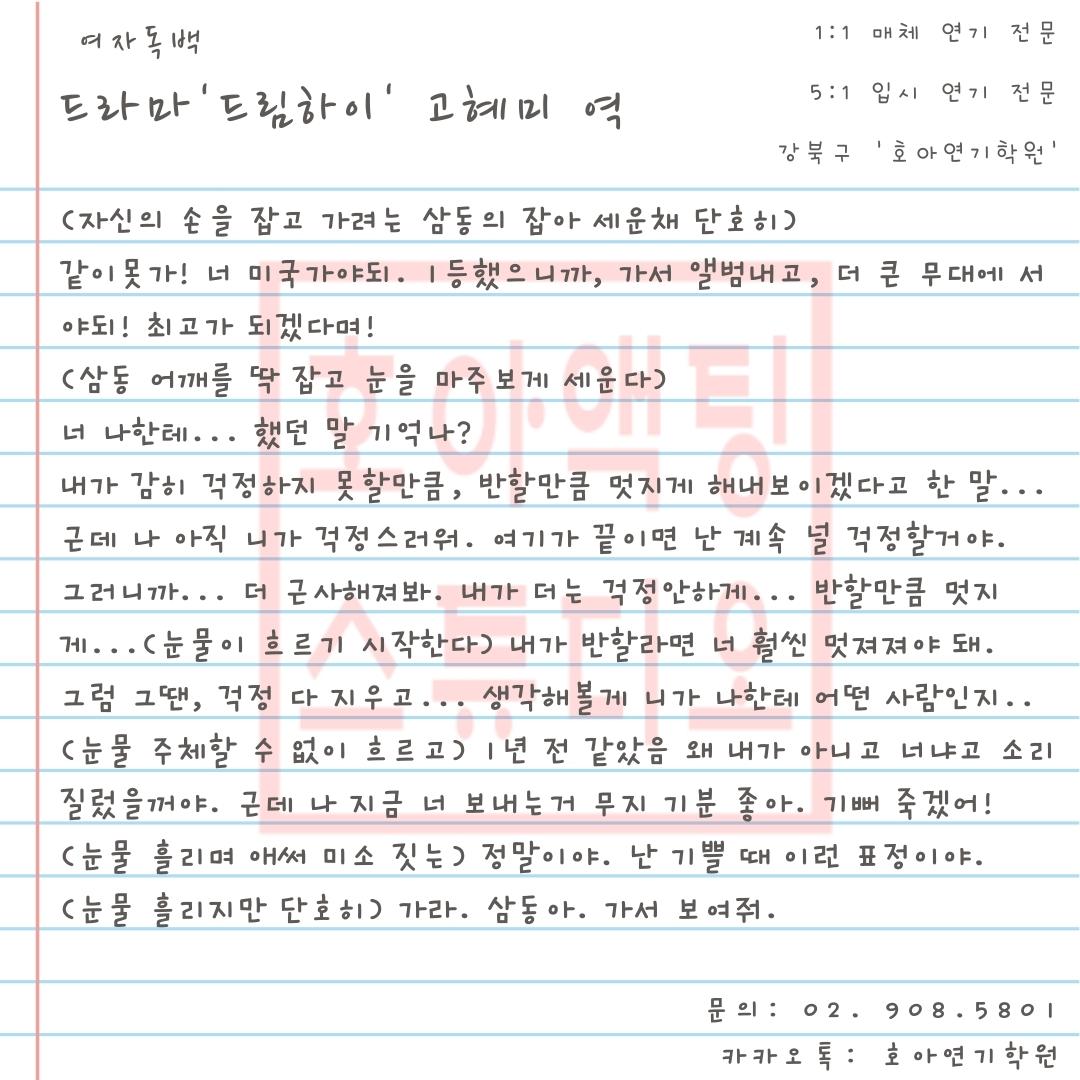 여자독백
드라마'드림하이' 고혜미 역
1:1 매체 연기 전문
5:1 입시 연기 전문
강북구 '호아연기학원'
(자신의 손을 잡고 가려는 삼동의 잡아 세운채 단호히)
같이못가! 너 미국가야되. 1등했으니까, 가서 앨범내고, 더 큰 무대에 서
야되! 최고가 되겠다며!
(삼동 어깨를 딱 잡고 눈을 마주보게 세운다)
너 나한테... 했던 말 기억나?
내가 감히 걱정하지 못할만큼, 반할만큼 멋지게 해내보이겠다고 한 말...
근데 나 아직 니가 걱정스러워. 여기가 끝이면 난 계속 널 걱정할거야.
그러니까... 더 근사해져봐. 내가 더는 걱정안하게... 반할만큼 멋지
게...(눈물이 흐르기 시작한다) 내가 반할라면 너 훨씬 멋져져야 돼.
그럼 그땐, 걱정 다 지우고... 생각해볼게 니가 나한테 어떤 사람인지..
(눈물 주체할 수 없이 흐르고) 1년 전 같았음 왜 내가 아니고 너냐고 소리
질렀을꺼야. 근데 나 지금 너 보내는거 무지 기분 좋아. 기뻐 죽겠어!
(눈물 흘리며 애써 미소 짓는) 정말이야. 난 기쁠 때 이런 표정이야.
(눈물 흘리지만 단호히) 가라. 삼동아. 가서 보여줘.
호아액팅
스튜디오
문의: 02. 908.5801
카카오톡: 호아연기학원